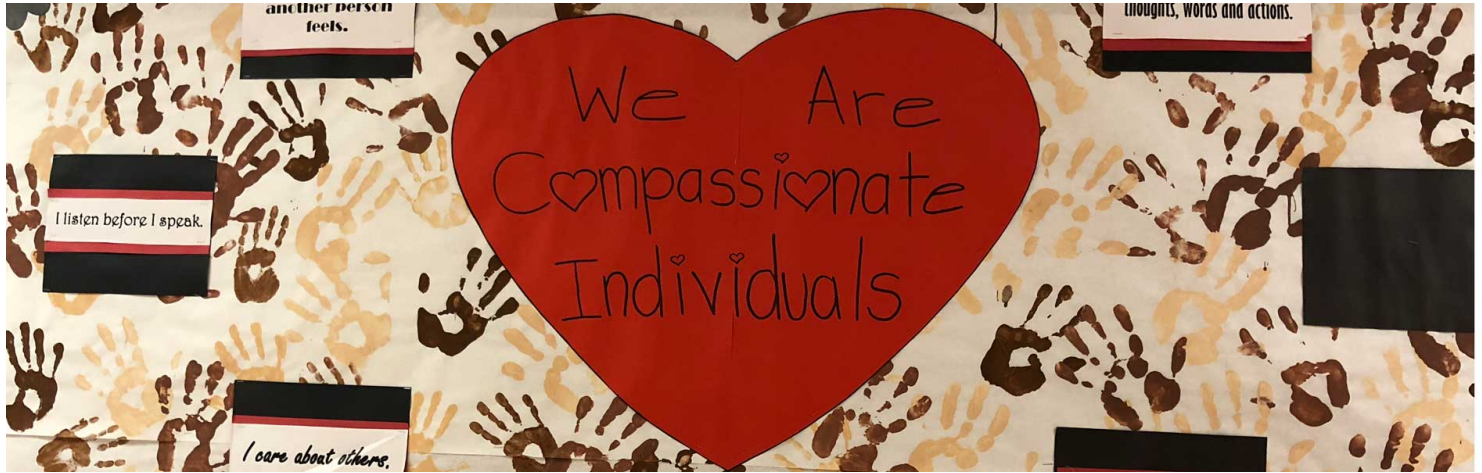 another person
feels.
thoughts, words and actions.
We Are
Compassionate
Individuals
I listen before I speak.
I care about others.